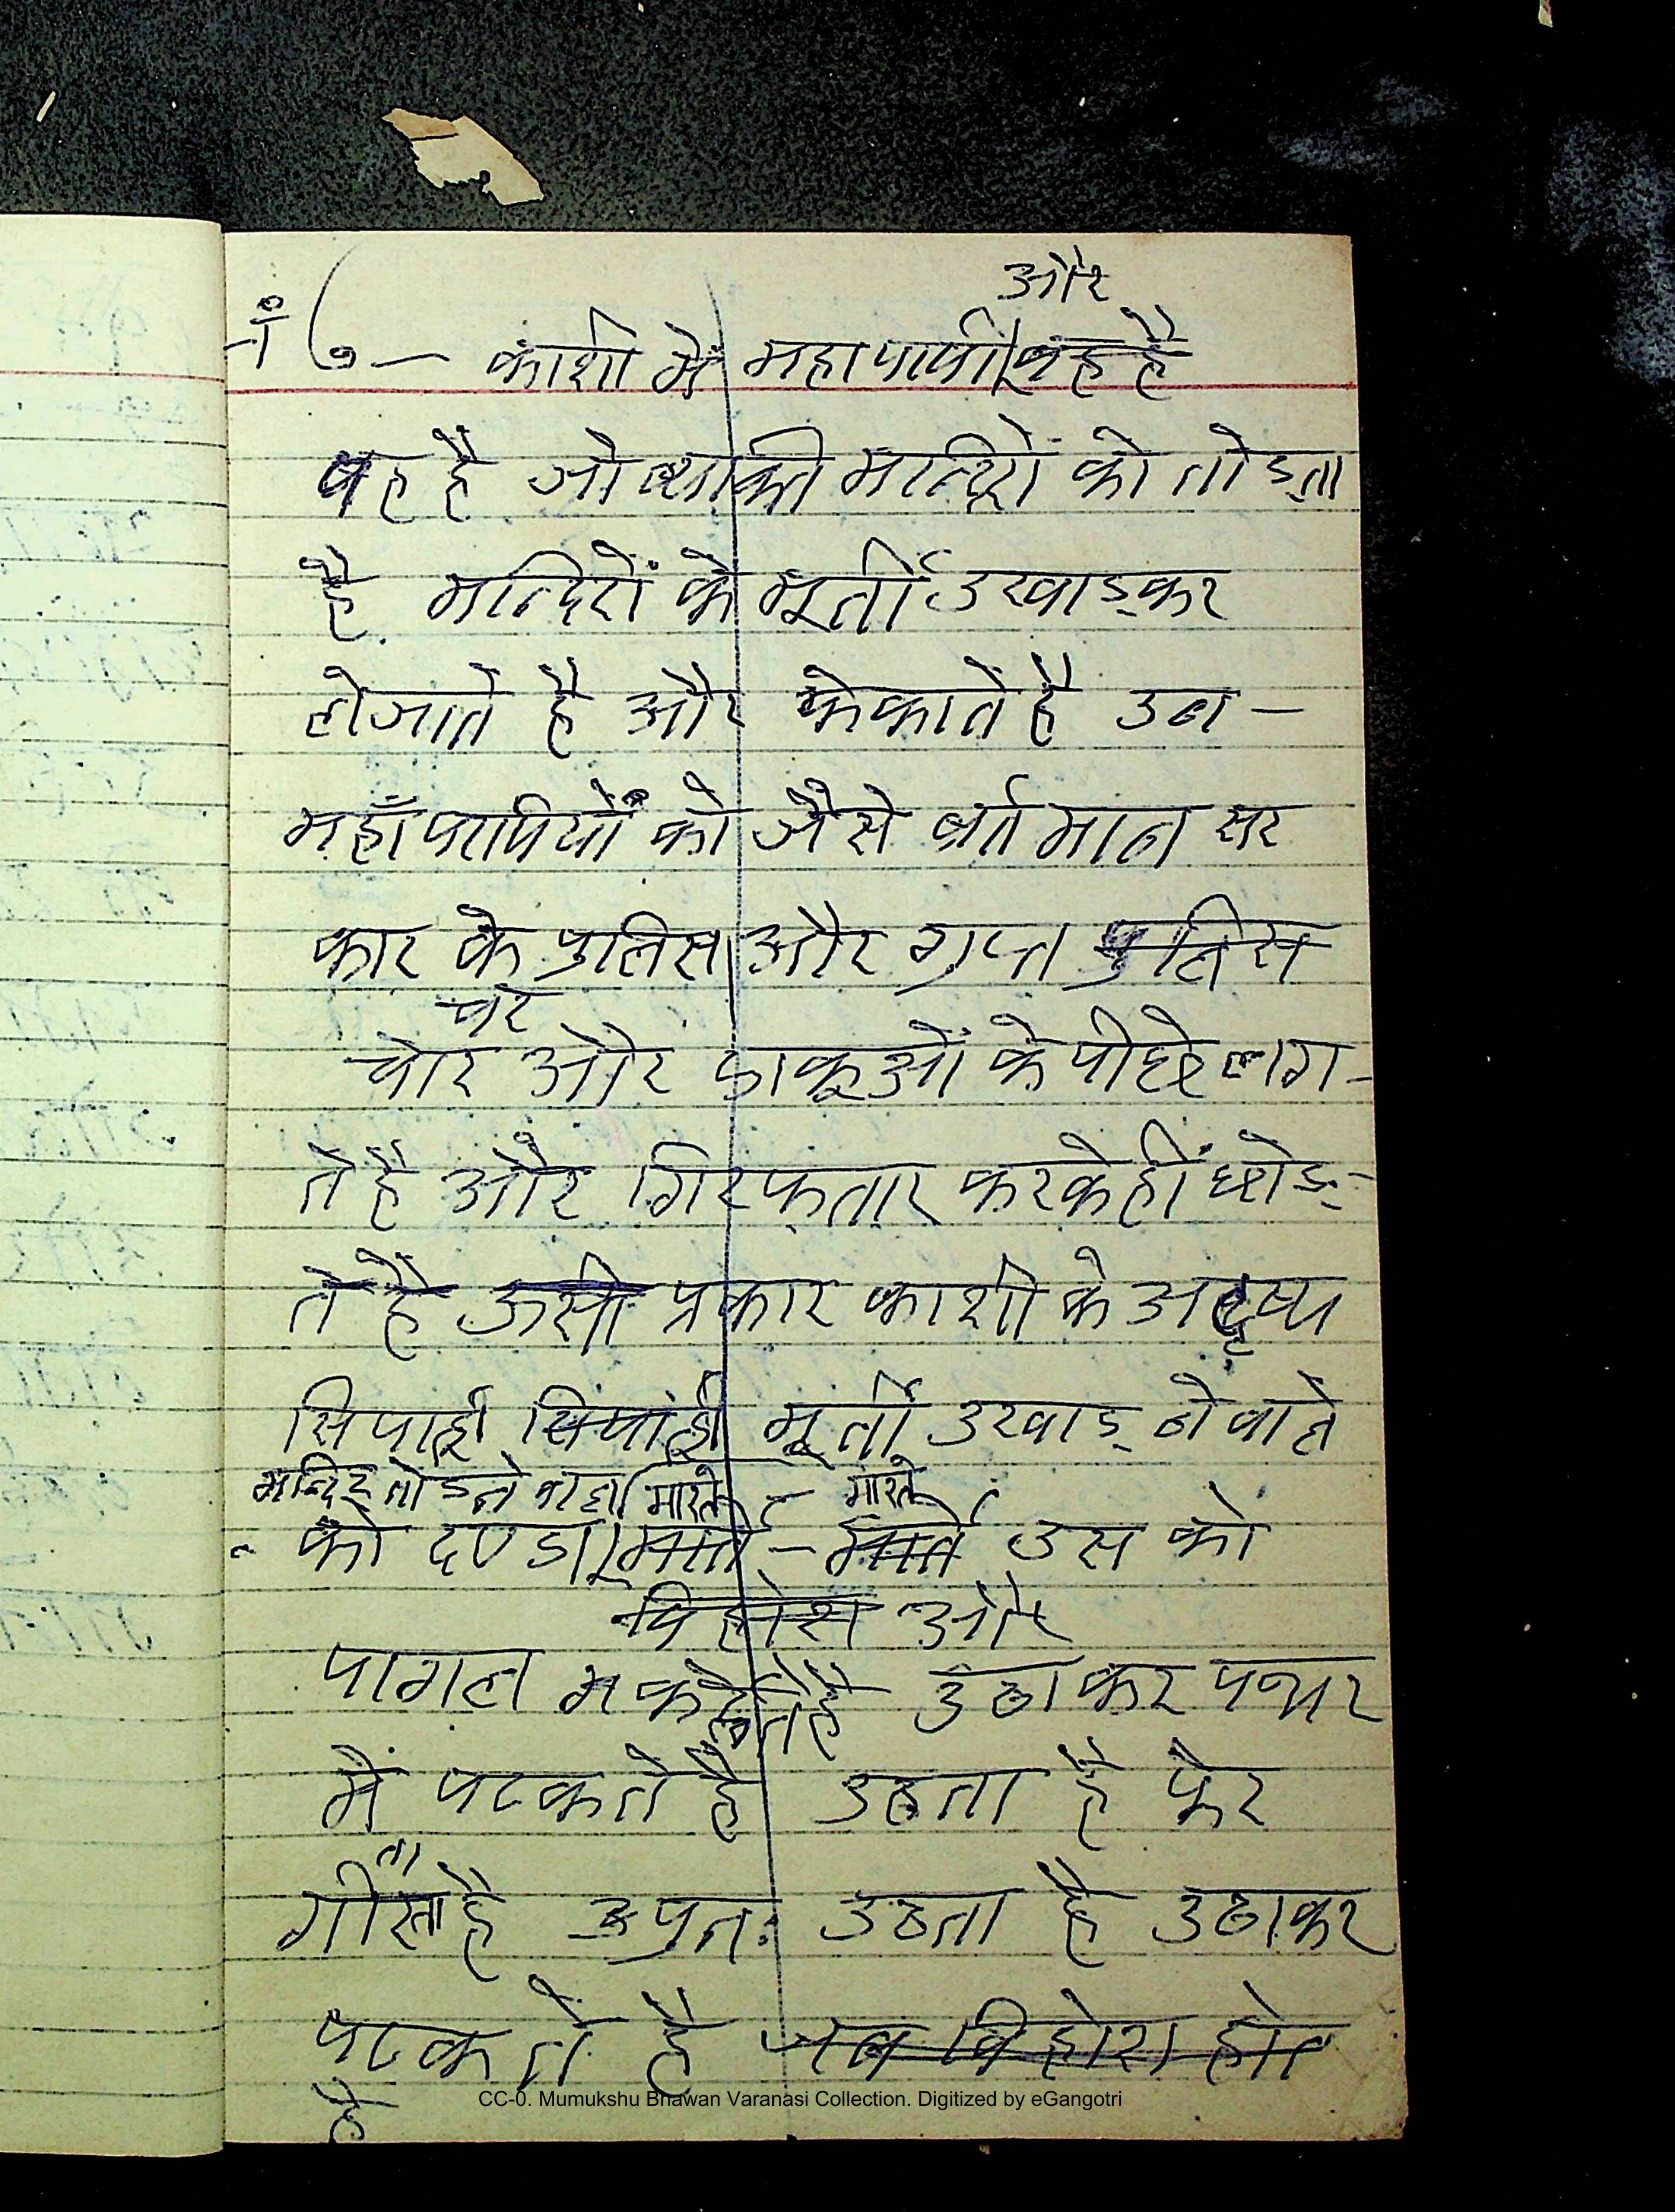 और
नं ७ — काशी में महापापी वह है
वह है जो व्यक्ति मन्दिरों को तोड़ता
है मन्दिरों के मूर्ती उखाड़कर
लेजाते है और फेकाते है उन —
महाँपापियों को जैसे वर्तमान सर
कार के पुलिस और गुप्त पुलिस
चर
चोर और डाकूओं के पीछे लग -
ते है और गिरफ्तार करकेहीं छोड़ -
ते है ऊसी प्रकार काशी के अदृष्य
सिपाही सिपाही मूर्ती उखाड़ ने वाले
मन्दिर तोडने वाला मारते - मारते
को दण्डा मार्ते - मार्ते उस को
विहोस और
पागल देते है उठाकर पत्थर
में पटकते है उठता है फेर
ता
गीरता है पुनः उठता है उठाकर
पटकते है जब विहोश होत
है
CC-0. Mumukshu Bhawan Varanasi Collection. Digitized by eGangotri